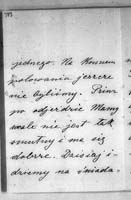 jednego. Na końcu
polowania jeszcze
nie byliśmy. Prim
po odjeździe Mamy
wcale nie jest tak
smutny i ma się
dobrze. Dzisiaj i-
dziemy na śniada-